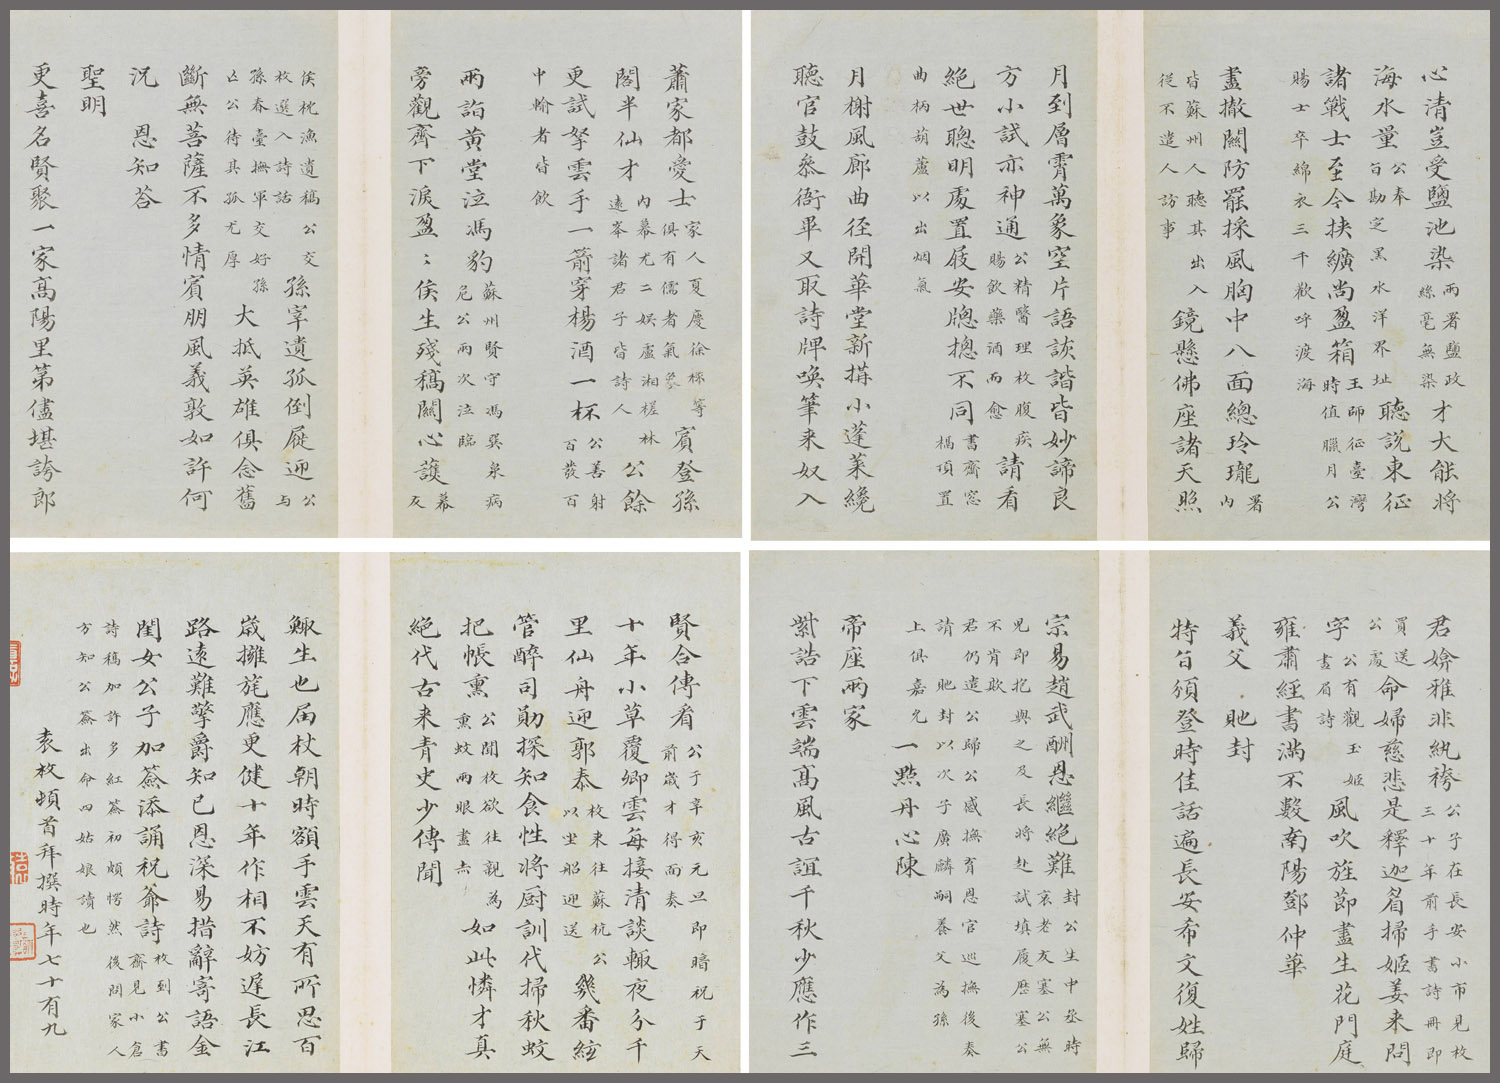 心清豈受鹽池染兩署鹽政絲毫無染才大能將
海水量公奉旨勘定黑水洋界址聽說東征
諸戰士至今挾纊尚盈箱王師征臺灣時值臘月公
賜士卒綿衣三千歡呼渡海
盡撤關防罷採風胸中八面總玲瓏署內
皆蘇州人聽其出入從不遣人訪事鏡懸佛座諸天照
月到層霄萬象空片語詼諧皆妙諦良
方小試亦神通公精醫理枚腹疾賜飲藥酒而愈請看
絕世聰明處置屐安牕摠不同書齋窓槅頂置
曲柄葫蘆以出烟氣
月榭風廊曲径開華堂新搆小蓬萊纔
聽官鼓叅衙畢又取詩牌喚筆来奴入
蕭家都愛士家人夏慶徐樑等俱有儒者氣象賓登孫
閣半仙才內幕尤二娛盧湘槎林遠峯諸君子皆詩人公餘
更試弩雲手一箭穿楊酒一杯公善射百發百
中輸者皆飲
兩詣黃堂泣馮豹蘇州賢守馮巽泉病危公兩次泣臨
旁觀齊下淚盈〻侯生殘稿關心護幕友
侯枕漁遺稿公交枚選入詩話孫宰遺孤倒屣迎公与
孫春臺撫軍交好孫亡公待其孤尤厚大抵英雄俱念舊
斷無菩薩不多情賓朋風義敦如許何
況 恩知荅
聖明
更喜名賢聚一家高陽里第儘堪誇郎
君媕雅非紈袴公子在長安小市見枚三十年前手書詩冊即
買送公處命婦慈悲是釋迦看掃姬姜来問
字公有觀玉姬畫眉詩風吹旌節盡生花門庭
雍肅經書滿不數南陽鄧仲華
義父 貤封
特旨頒登時佳話遍長安希文復姓歸
宗易趙武酬恩繼絕難封公生中丞時哀老友塞公無
児即抱與之及長將赴試填履歷塞公不肯欺
君仍遣公歸公感撫育恩官巡撫後奏請貤封以次子廣麟嗣養父為孫
上俱嘉允一㸃丹心陳
帝座兩家
紫誥下雲端高風古誼千秋少應作三
賢合傳看公子辛亥元旦即暗祝于天前歲才得而奏
十年小草覆卿雲每接清談輙夜分千
里仙舟迎郭泰枚来往蘇杭公以坐船迎送幾番絃
管醉司勛探知食性將厨訓代掃秋蚊
把帳熏公聞枚欲往親為熏蚊兩眼盡赤如此憐才真
絕代古来青史少傳聞
鯫生也屆杖朝時額手雲天有所思百
歲擁旄應更健十年作相不妨遲長江
路遠難擎爵知己恩深易措辭寄語金
閨女公子加簽添誦祝爺詩枚到公書齋見小倉
詩稿加許多紅簽初頗愕然後問家人
方知公簽出命四姑娘讀也
袁枚頓首拜撰時年七十有九